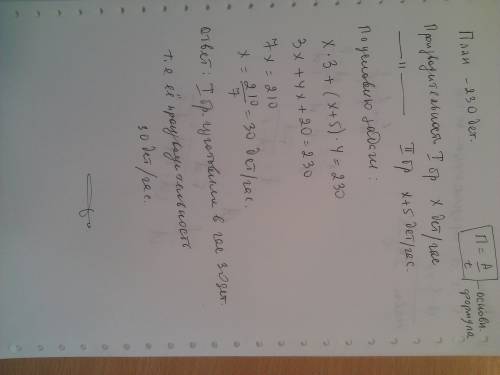 План – 230 дет.
Производительная I бр x дет/час
—— " —— II бр x+5 дет/час.
П = A/t – основн. формула
По условию задачи:
x·3 + (x+5)·4 = 230
3x + 4x + 20 = 230
7x = 210
x = 210/7 = 30 дет/час.
Ответ: I бр. изготовили в час 30 дет.
т.е её производительность
30 дет/час.